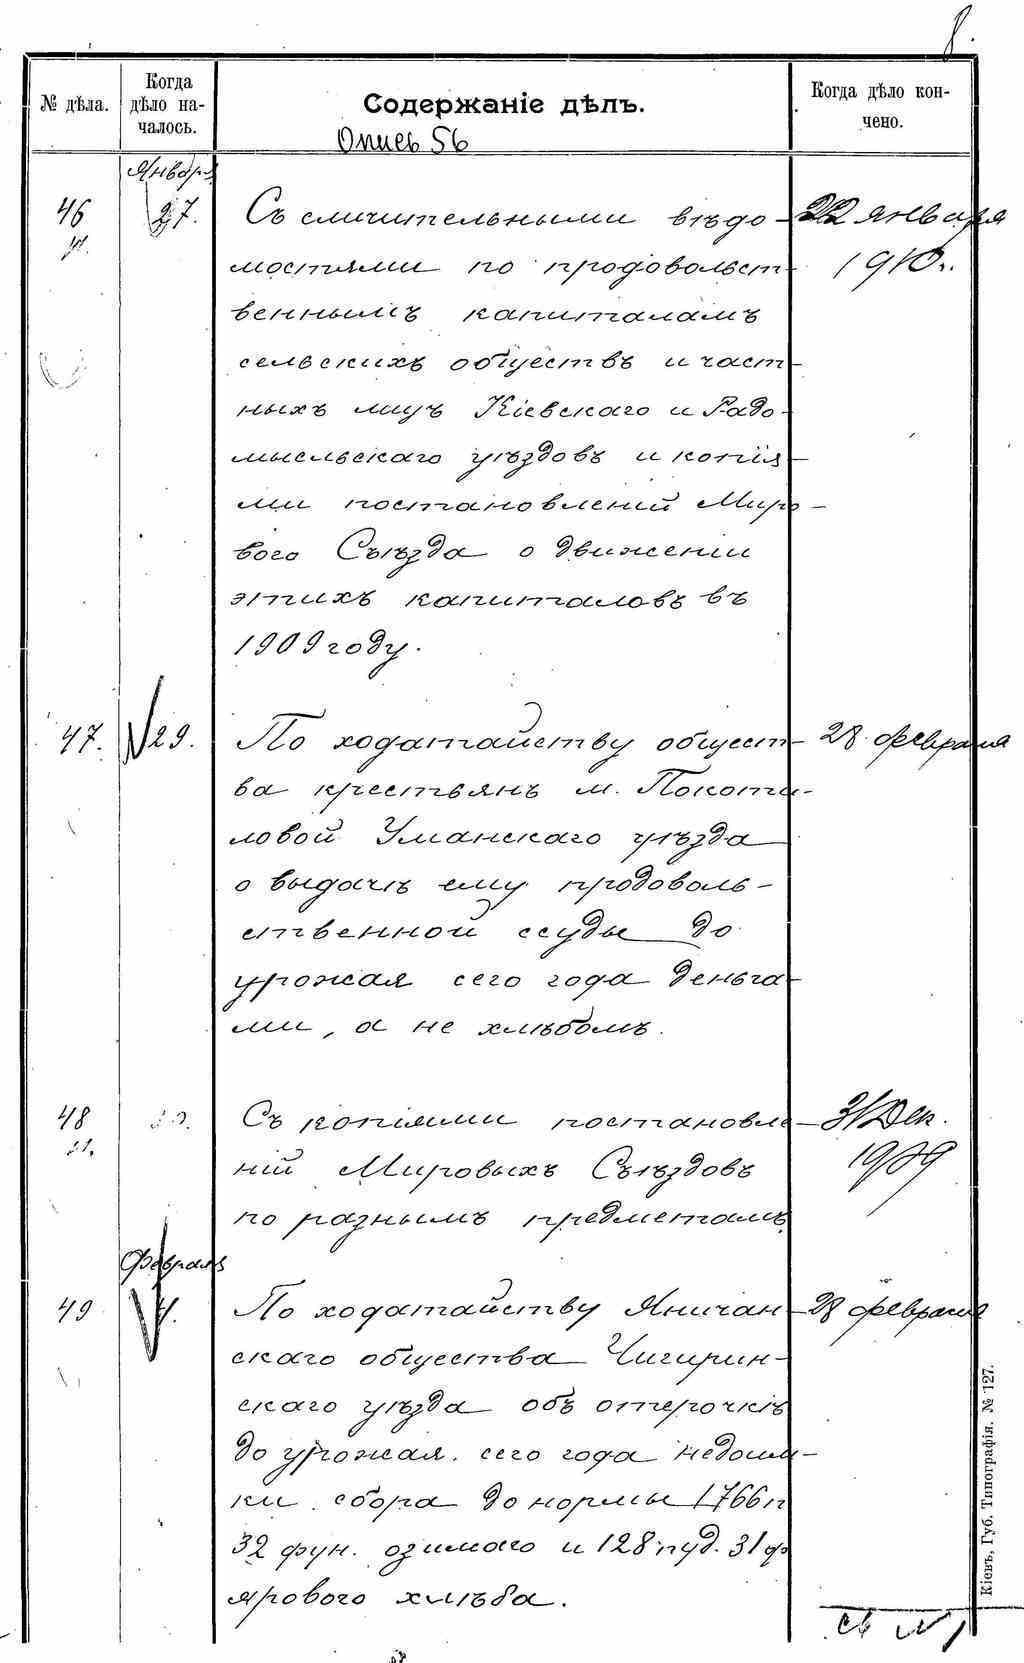 8.
№ дѣла.
Когда дѣло на-
чалось.
Содержаніе дѣлъ.
Когда дѣло кон-
чено.
Опись 56
Января
46
27.
Съ сличительными вѣдо-
22 января
мостями по продовольст-
1910 г.
веннымъ капиталамъ
сельскихъ обществъ и част-
ныхъ лицъ Кіевскаго и Радо-
мысльскаго уѣздовъ и копія-
ми постановленій Миро-
вого Съѣзда о движеніи
этихъ капиталовъ въ
1909 году.
47.
29.
По ходатайству общест-
28 февраля
ва крестьянъ м. Покоти-
ловой Уманскаго уѣзда
о выдачѣ ему продоволь-
ственной ссуды до
урожая сего года деньга-
ми, а не хлѣбомъ.
48
Съ копіями постановле-
31 Дек.
ній Мировыхъ Съѣздовъ
1909
по разнымъ предметамъ
Февраля
49
4.
По ходатайству Яничан-
28 февраля
скаго общества Чигирин-
скаго уѣзда объ отсрочкѣ
до урожая сего года недоим-
ки сбора до нормы 1766 п
32 фун. озимаго и 128 пуд. 31 ф
ярового хлѣба.
Кіевъ, Губ. Типографія. № 127.